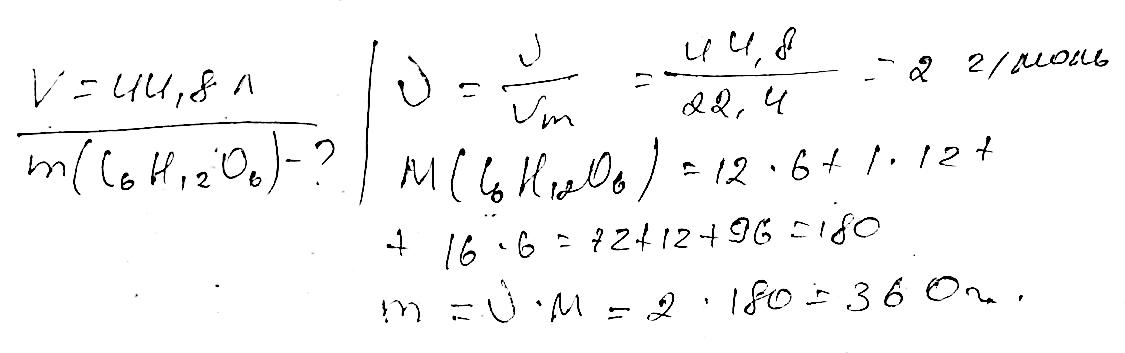 V = 44,8 л
m(C₆H₁₂O₆) - ?
ν = V/Vm = 44,8/22,4 = 2 г/моль
M(C₆H₁₂O₆) = 12 · 6 + 1 · 12 +
+ 16 · 6 = 72 + 12 + 96 = 180
m = ν · M = 2 · 180 = 360 г.